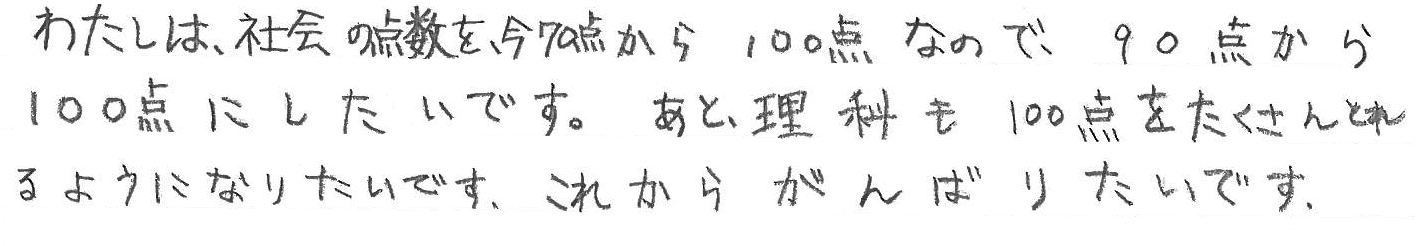 わたしは、社会の点数を、今70点から 100点なので、90点から
100点にしたいです。あと、理科も100点をたくさんとれ
るようになりたいです、これからがんばりたいです、